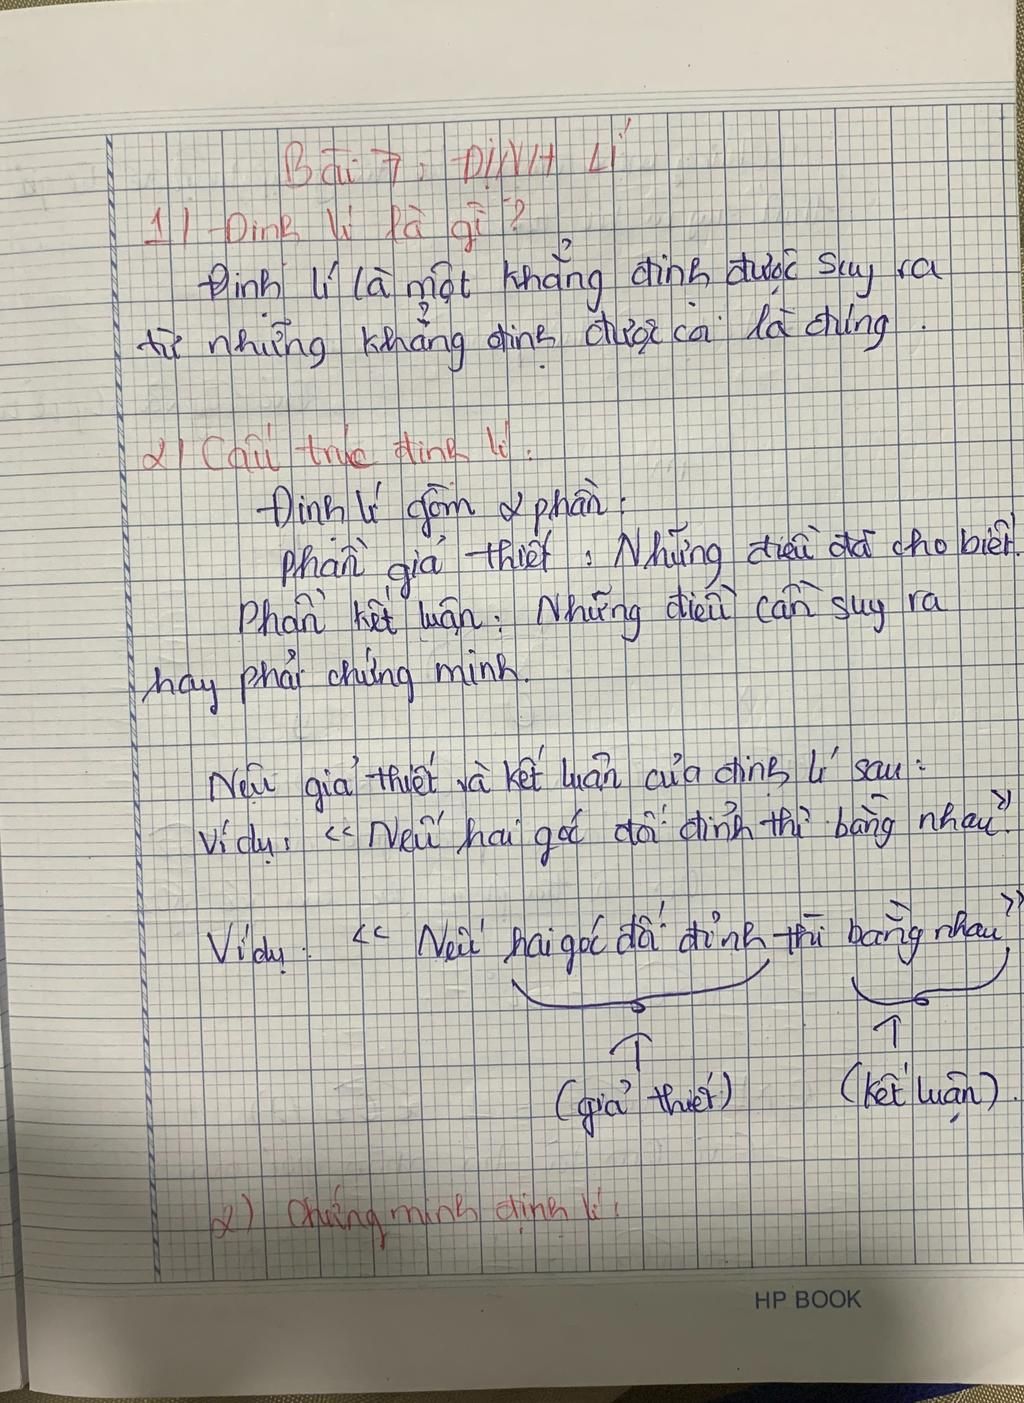 Bài 7: ĐỊNH LÍ
1) Định lí là gì?
Định lí là một khẳng định được suy ra
từ những khẳng định được coi là đúng.
2) Cấu trúc định lí:
Định lí gồm 2 phần:
phần giả thiết: Những điều đã cho biết.
Phần kết luận: Những điều cần suy ra
hay phải chứng minh.
Nêu giả thiết và kết luận của định lí sau:
Ví dụ: "Nếu hai góc đối đỉnh thì bằng nhau".
Ví dụ: "Nếu hai góc đối đỉnh thì bằng nhau"
(giả thiết) (kết luận).
2) Chứng minh định lí:
HP BOOK